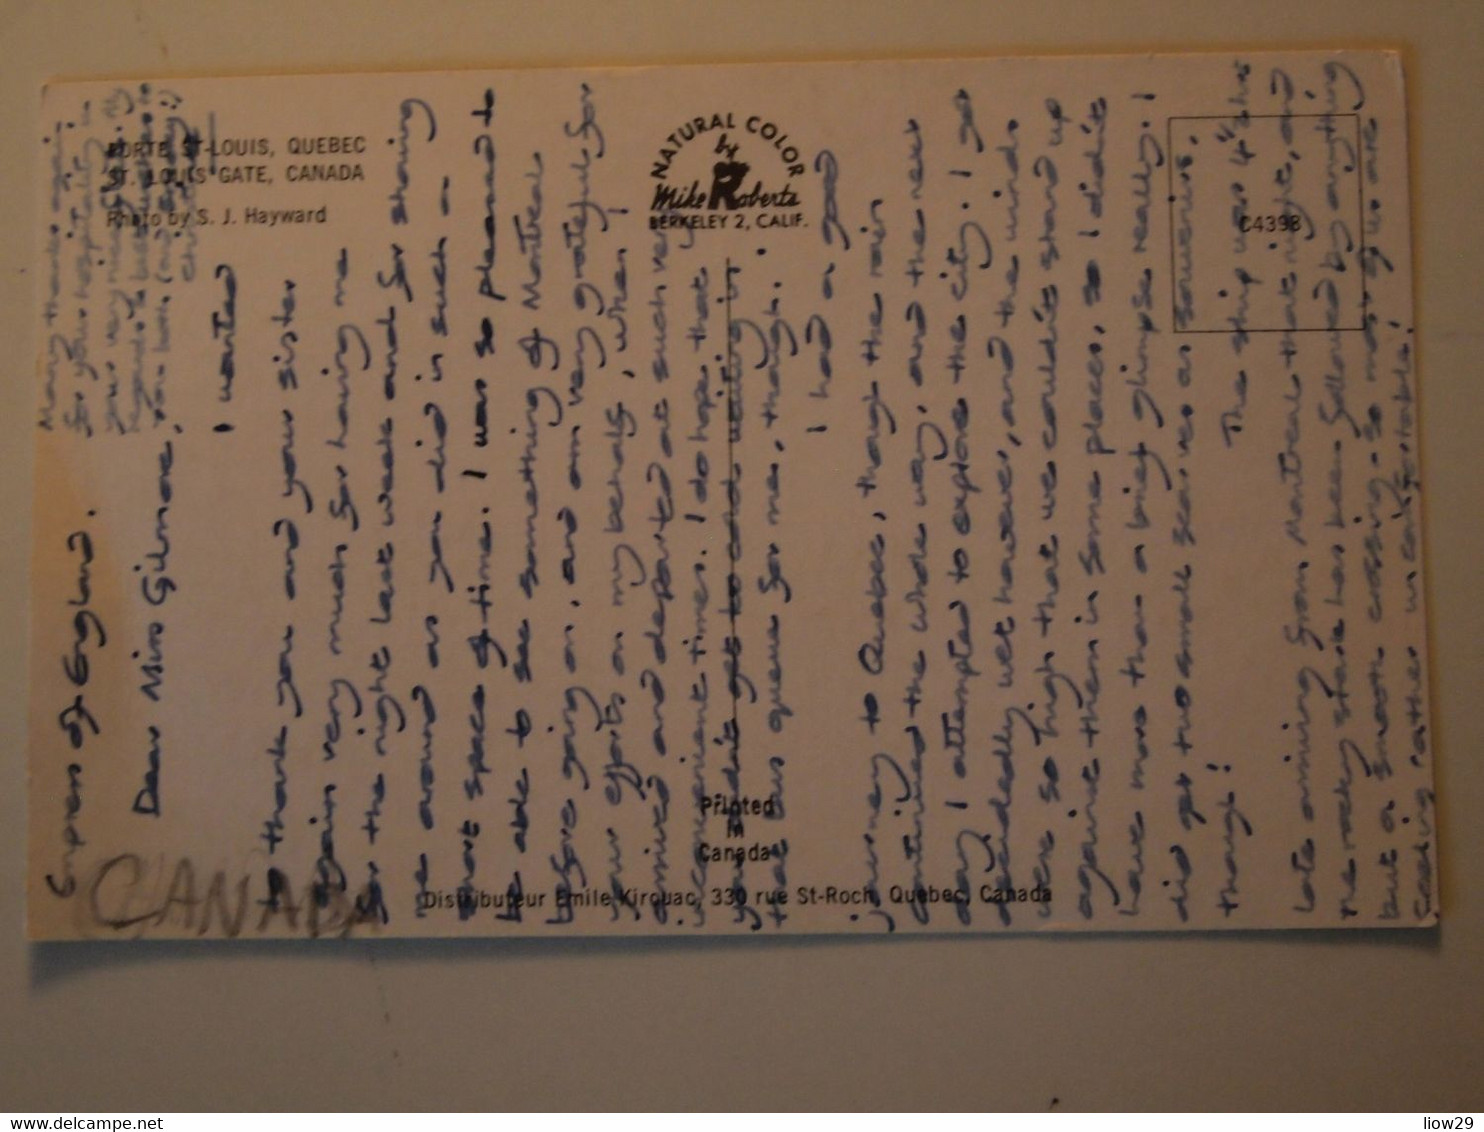 PORTE ST-LOUIS, QUEBEC
ST. LOUIS GATE, CANADA
Photo by S. J. Hayward
NATURAL COLOR
by
Mike Roberts
BERKELEY 2, CALIF.
C4398
Printed
in
Canada
Distributeur Emile Kirouac, 330 rue St-Roch, Quebec, Canada
CANADA
Empress of England.
Dear Miss Gilmore,
I wanted
to thank you and your sister
again very much for having me
for the night last week and for showing
me around as you did in such a
short space of time. I was so pleased to
be able to see something of Montreal
before going on, and am very grateful for
your efforts on my behalf, when I
arrived and departed at such very
inconvenient times. I do hope that
you didn't get too cold waiting in
that bus queue for me, though.
I had a good
journey to Quebec, though the rain
continued the whole way, and the next
day I attempted to explore the city. I got
dreadedly wet however, and the winds
were so high that we couldn't stand up
against them in some places, so I didn't
have more than a brief glimpse really. I
did get two small scarves as souvenirs,
though!
The ship was 4½ hrs
late arriving from Montreal that night, and
the rocky start has been followed by anything
but a smooth crossing - so most of us are
feeling rather uncomfortable!
Many thanks again
for your hospitality in
your very nice
regards & best wishes to
you both (and
delcampe.net
liow29